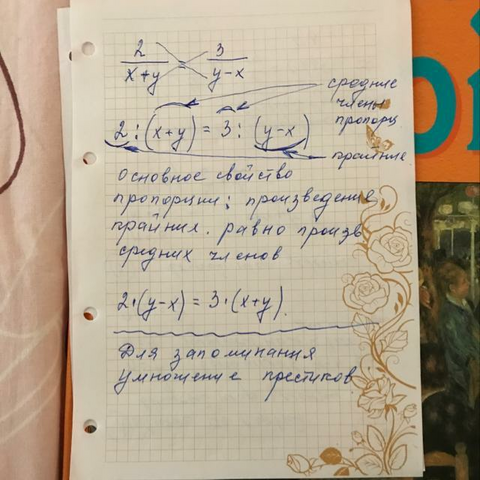 2/(x+y) = 3/(y-x)
средние
члены
пропорц
2 : (x+y) = 3 : (y-x)
крайние
Основное свойство
пропорции: произведение
крайних. равно произв
средних членов
2·(y-x) = 3·(x+y).
Для запоминания
умножение крестиков